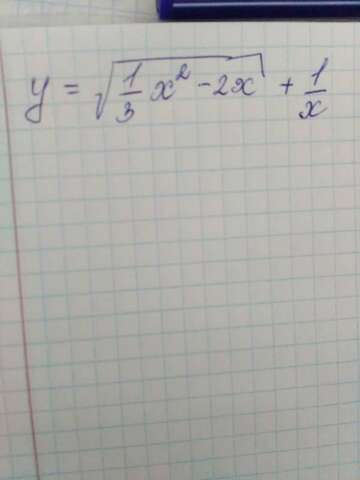 y = √(1/3 x² - 2x) + 1/x